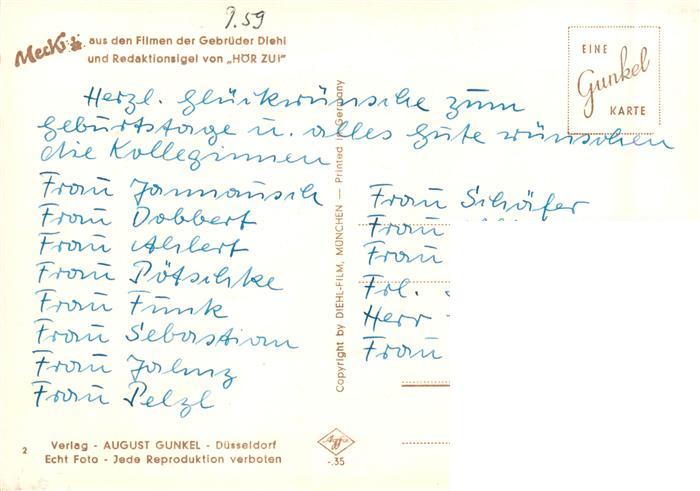 9.59
Mecki aus den Filmen der Gebrüder Diehl
und Redaktionsigel von „HÖR ZU!"
EINE
Gunkel
KARTE
Herzl. Glückwünsche zum
Geburtstage u. alles Gute wünschen
die Kolleginnen
Frau
Frau Dobbert
Frau Ahlert
Frau Pötschke
Frau Funk
Frau Sebastian
Frau
Frau Pelzl
Frau Schäfer
Frau
Frau
Frl.
Herr
Frau
Copyright by DIEHL-FILM, MÜNCHEN — Printed in Germany
2
Verlag - AUGUST GUNKEL - Düsseldorf
Echt Foto - Jede Reproduktion verboten
Agfa
-.35